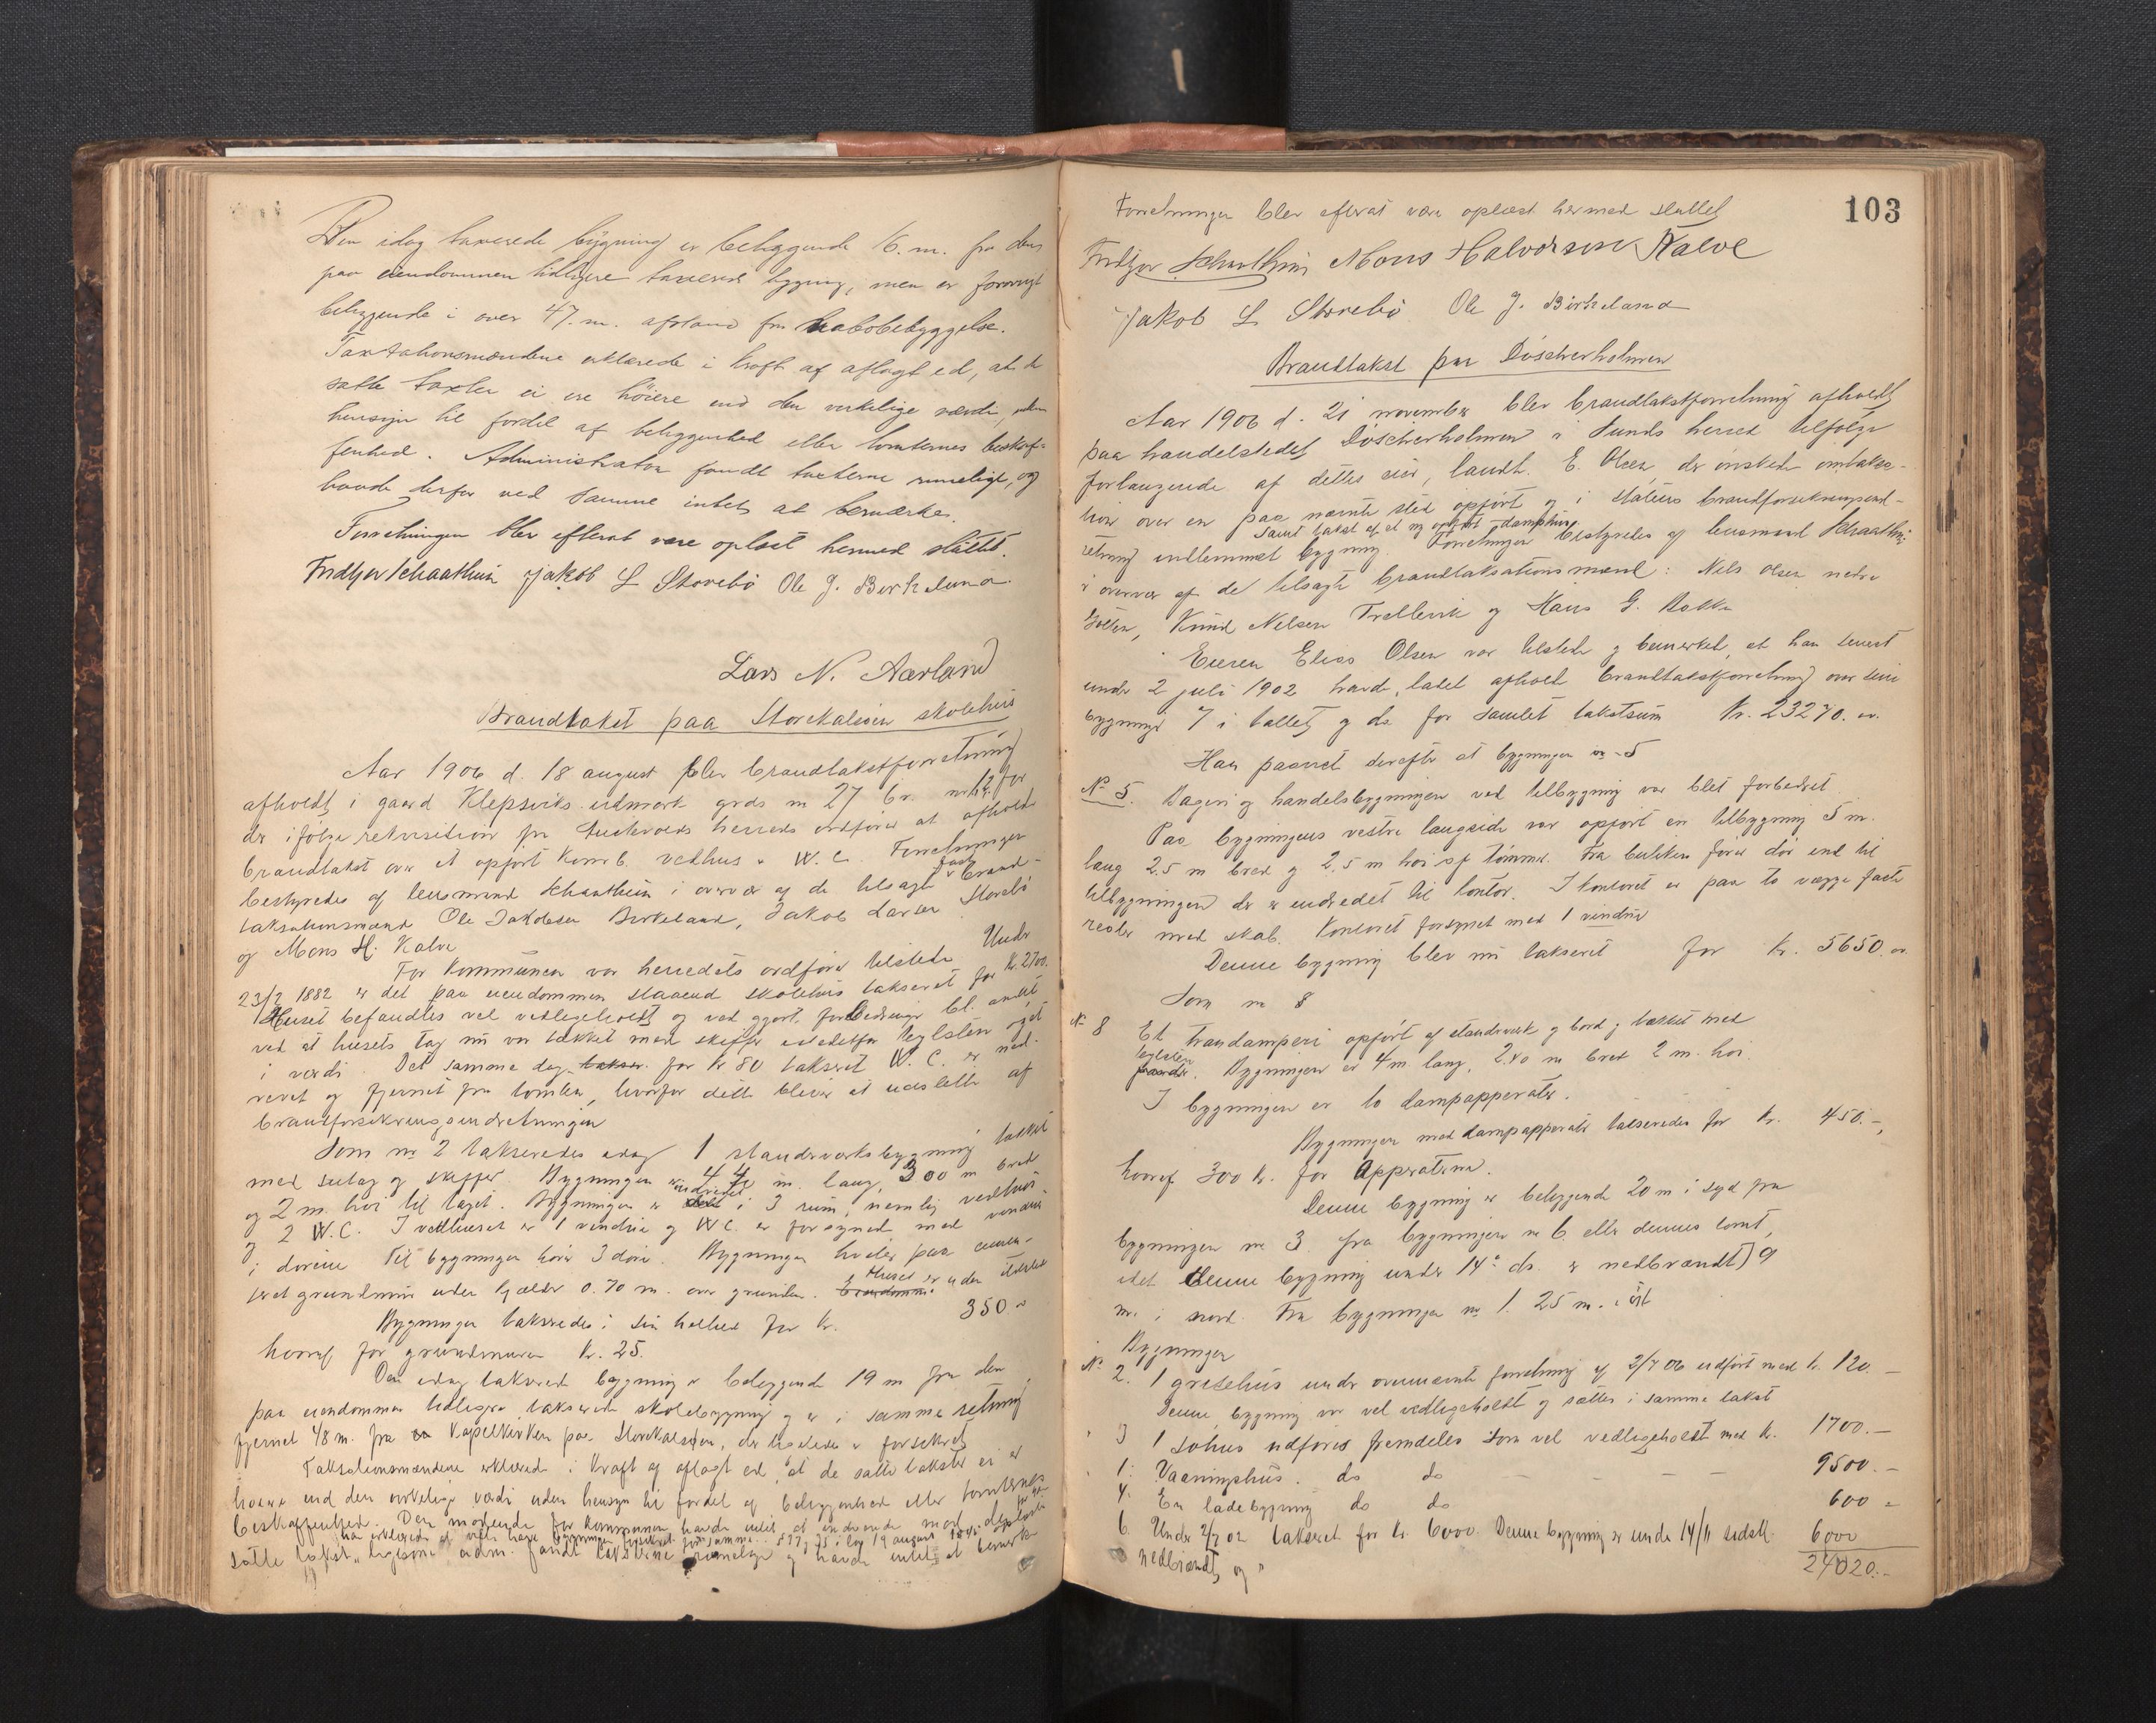 Den idag taxerede bygning er beliggende 16. m. fra den
paa eiendommen tidligere taxerede bygning, men er forøvrigt
beliggende i over 47. m. afstand fra nabobebyggelse.
Taxtationsmændene erklærede i kraft af aflagt ed, at de
satte taxter ei ere høiere end den verkelige værdi, uden
hensyn til fordel af beliggenhed eller tomternes beskaf-
fenhed. Administrator fandt taxterne rimelige, og
havde derfor ved samme intet at bemærke.
Forretningen blev efterat være oplæst hermed sluttet.
Fridtjov Schaathun Jakob L Storebø Ole J. Birkeland
Lars N. Aarland
Brandtakst paa Storekalsøen skolehus
Aar 1906 d. 18 august blev brandtakstforretning
afholdt i gaard Klepsviks udmark grds no 27 br. no 12 for
der ifølge rekvisition fra Austevolds herreds ordfører at afholde
brandtakst over et opført komb. vedhus & W. C. Forretningen
bestyredes af lensmand Schaathun i overvær af de tilsagte faste brand-
taksationsmænd Ole Jakobsen Birkeland, Jakob Larsen Storebø
og Mons H. Kalve
For kommunen var herredets ordfører tilstede Under
23/2 1882 er det paa eiendommen staaend skolehus takseret for Kr. 2700.
Huset befandtes vel vedligeholdt og ved gjort forbedringer bl. andet
ved at husets tag nu var tækket med skiffer istedetfor teglsten øget
i værdi. Det samme dag taksr. for Kr 80 takseret W. C. er ned-
revet og fjernet fra tomten, hvorfor dette bliver at udslette af
brandforsikringsindretningen
Som no 2 takseredes idag 1 standværksbygning tækket
med sutag og skiffer. Bygningen er 4.40 m. lang, 300 m bred
og 2 m. høi til taget. Bygningen er indredet i 3 rum, nemlig vedhus
og 2 W. C. I vedhuset er 1 vindu og W C. er forsynet med vinduer
i dørene Til bygningen hører 3 døre. Bygningen hviler paa cemen-
teret grundmur uden kjælder 0.70 m. over grunden. Huset er uden ildsted
Bygningen takseredes i sin helhed for Kr. 350 "
hvoraf for grundmuren Kr. 25.
Den idag takserede bygning er beliggende 19 m fra den
paa eiendommen tidligere takserede skolebygning og er i samme retning
fjernet 48 m. fra Kapelkirken paa Storekalsøen, der ligeledes er forsikret
Taksationsmændene erklærede i kraft af aflagt ed, at de satte takster ei er
høiere end den virkelige værdi uden hensyn til fordel af beliggenhed eller tomternes
beskaffenhed. Den mødende for kommunen havde intet at indvende mod
han erklærede at ville have bygningen forsikret for samme. 19 august 1845
satte takst, ligesom adm. fandt taksterne rimelige og havde intet at bemærke
103
Forretningen blev efterat være oplæst hermed sluttet
Fridtjov Schaathun Mons Halvorsen Kalve
Jakob L Storebø Ole J. Birkeland
Brandtakst paa Döscherholmen
Aar 1906 d. 21 november blev brandtakstforretning afholdt
paa handelstedet Döscherholmen i Sunds herred tilfølge
forlangende af dettes eier, landh. E. Olsen, der ønskede omtaksa-
tion over en paa nævnte sted opført og i statens brandforsikringsind-
samt takst af et ny opført damphus
retning indlemmet bygning. Forretningen bestyredes af lensmand Schaathun
i overvær af de tilsagte brandtaksationsmænd: Nils Olsen nedre
Golten, Knud Nilsen Trellevik og Hans G. Bakke
Eieren Elias Olsen var tilstede og bemerket, at han senest
under 2 juli 1902 havde ladet afholdt brandtakstforretning over sine
bygninger 7 i tallet og da for samlet takstsum Kr. 23270. "
Han paaviste derefter at bygningen no 5
No 5. Bageri og handelsbygningen ved tilbygning var blet forbedret.
Paa bygningens vestre langside var opført en tilbygning 5 m.
lang 2.5 m bred og 2,5 m høi af tømmer. Fra butiken fører dør ind til
tilbygningen der er indredet til kontor. I kontoret er paa to vægge faste
reoler med skab. Kontoret forsynet med 1 vindu
Denne bygning blev nu takseret for Kr. 5650. "
Som no 8
No 8 Et trandamperi opført af standværk og bord og tækket med
teglsten. Bygningen er 4 m. lang, 2.40 m bred 2 m. høi.
I bygningen er to dampapparater.
Bygningen med dampapparater takseredes for Kr. 450.-,
hvoraf 300 kr. for Apparatene.
Denne bygning er beliggende 20 m i syd fra
bygningen no 3 fra bygningen no 6 eller dennes tomt,
idet denne bygning under 14de ds. er nedbrændt) 9
m. i nord. Fra bygningen no 1. 25 m. i øst
Bygningen
No 2. 1 grisehus under ovennævnte forretning af 2/7 02 udført med Kr. 120. -
Denne bygning var vel vedligeholdt og sættes i samme takst
" 3 1 søhus udføres fremdeles som vel vedligeholdt med Kr. 1700. -
" 1. Vaaningshus. do do - - - - 9500. -
4. En ladebygning do do 600 -
6. Under 2/7 02 takseret for Kr. 6000. Denne bygning er under 14/11 sidstl. 6000
nedbrændt, og " 24020. -